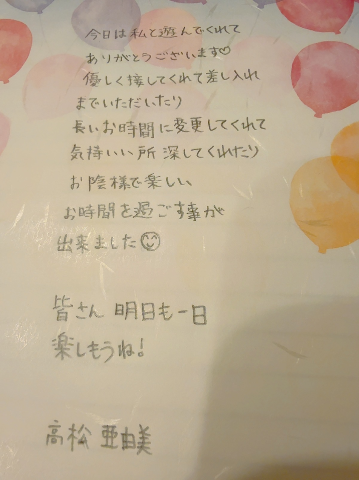 今日は私と遊んでくれて
ありがとうございます♡
優しく接してくれて差し入れ
までいただいたり
長いお時間に変更してくれて
気持いい所 深してくれたり
お陰様で楽しい、
お時間を過ごす事が
出来ました😊
皆さん 明日も一日
楽しもうね!
高松 亜由美